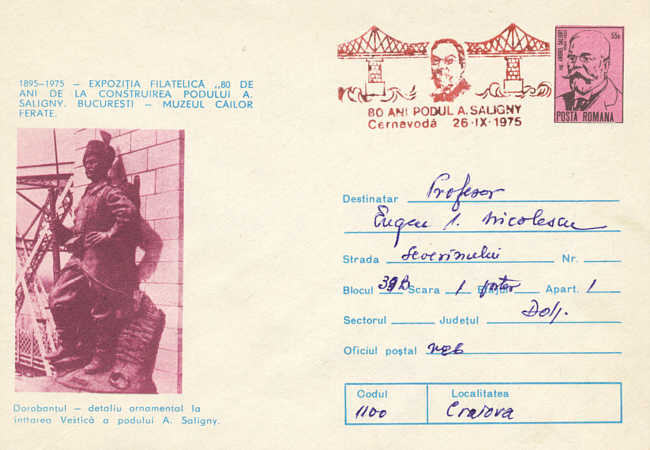 1895-1975 – EXPOZIȚIA FILATELICĂ „80 DE
ANI DE LA CONSTRUIREA PODULUI A.
SALIGNY. BUCUREȘTI – MUZEUL CĂILOR
FERATE.
80 ANI PODUL A. SALIGNY
Cernavodă 26·IX·1975
55b
ING. ANGHEL SALIGNY
POSTA ROMANA
Destinatar Profesor
Eugen I. Nicolescu
Strada Severinului Nr.
Blocul 39b Scara 1 Etajul parter Apart. 1
Sectorul Județul Dolj.
Oficiul poștal
Codul Localitatea
1100 Craiova
Dorobanțul – detaliu ornamental la
intrarea Vestică a podului A. Saligny.